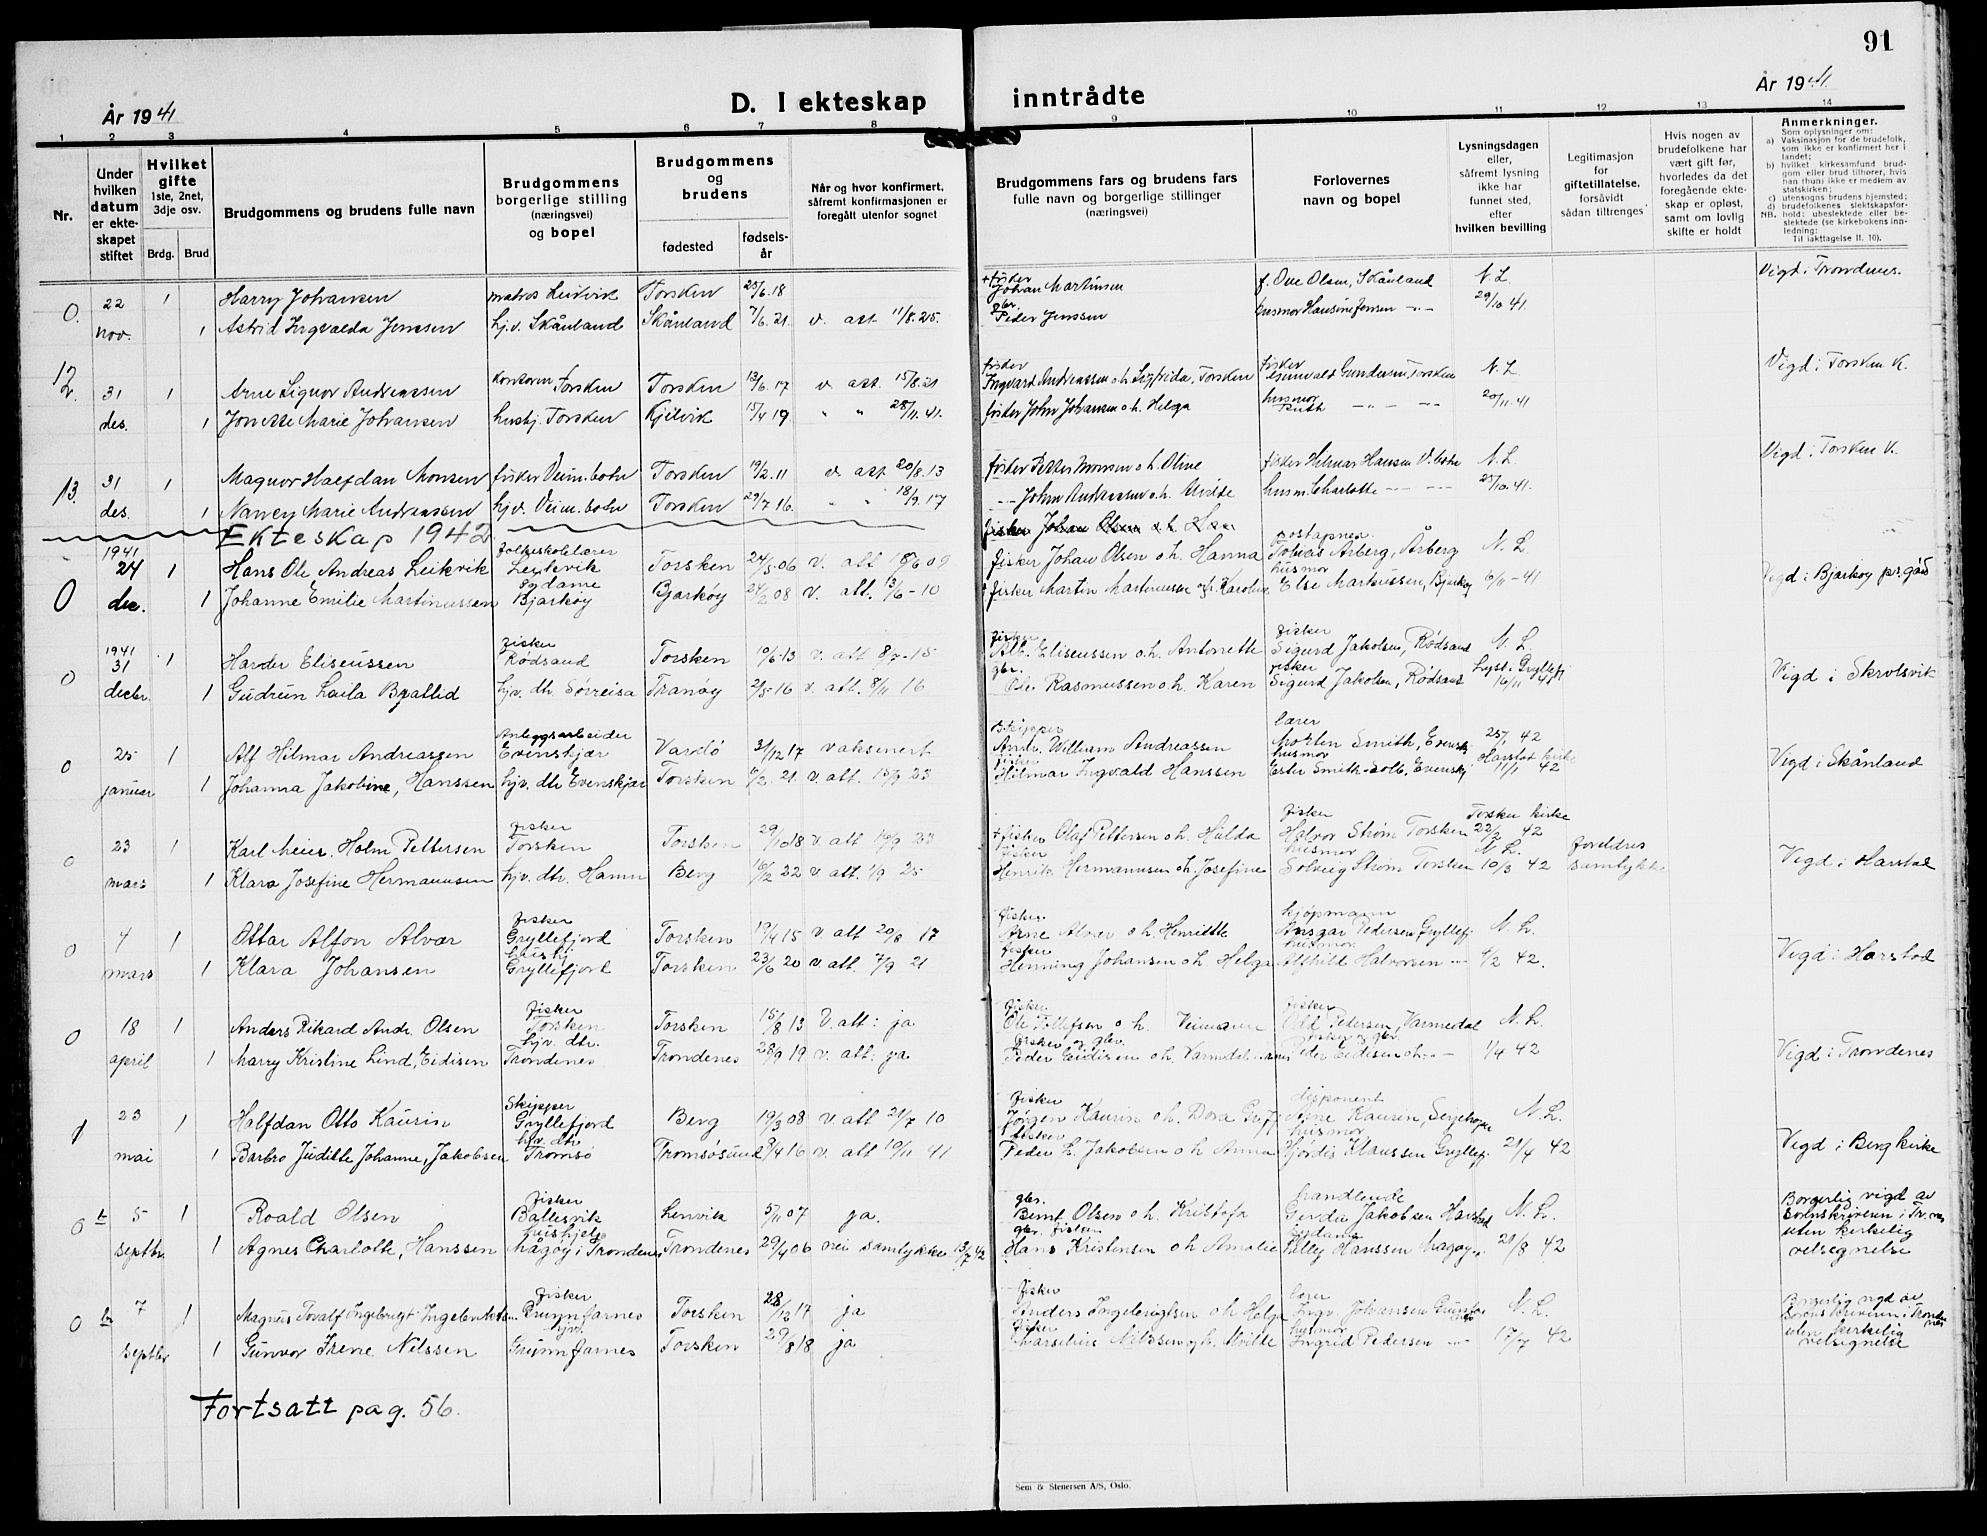 91
År 1941
D. I ekteskap inntrådte
År 1941
1 2 3 4 5 6 7 8 9 10 11 12 13 14
Nr.
Under hvilken datum er ekteskapet stiftet
Hvilket gifte 1ste, 2net, 3dje osv.
Brdg. Brud
Brudgommens og brudens fulle navn
Brudgommens borgerlige stilling (næringsvei) og bopel
Brudgommens og brudens
fødested
fødselsår
Når og hvor konfirmert, såfremt konfirmasjonen er foregått utenfor sognet
Brudgommens fars og brudens fars fulle navn og borgerlige stillinger (næringsvei)
Forlovernes navn og bopel
Lysningsdagen eller, såfremt lysning ikke har funnet sted, efter hvilken bevilling
Legitimasjon for giftetillatelse, forsåvidt sådan tiltrenges
Hvis nogen av brudefolkene har vært gift før, hvorledes da det foregående ekteskap er opløst, samt om lovlig skifte er holdt
Anmerkninger.
Som oplysninger om:
a) Vaksinasjon for de brudefolk, som ikke er konfirmert her i landet;
b) hvilket kirkesamfund brudgom eller brud tilhører, hvis han (hun) ikke er medlem av statskirken;
c) utensogns brudens hjemsted;
d) brudefolkenes slektskapsforhold: ubeslektede eller beslektede (se kirkebokens innledning:
NB.
Til iakttagelse II. 10).
0. 22 1 Harry Johansen matros Leikvik Torsken 25/6.18 + fisker Johan Martinsen f. Ove Olsen, Skånland N.L. Vigd i Trondenes.
nov. 1 Astrid Ingvalda Jenssen hj.v. Skånland Skånland 7/6.21. v. att 11/8.25. gbr. Peder Jenssen husmor Hansine Jensen -"- 29/10 41.
12. 31 1 Arne Signor Andreassen Torsken Torsken 13/6.17 v. att. 15/8.21 fisker Ingvard Andreassen o.h. Sigfrida, Torsken fisker Gundersen, Torsken N.L. Vigd i Torsken K.
des. 1 Jonette Marie Johansen hushj. Torsken Kjelvik 15/4 19. " " 28/11.41. fisker John Johansen o.h. Helga husmor Ruth -"- -"- 20/11.41
13. 31 1 Magnor Halfdan Monsen fisker Veim.botn Torsken 19/2.11 v. att. 20/8.13 fisker Petter Monsen o.h. Oline fisker Hilmar Hansen V.botn N.L. Vigd i Torsken K.
des. 1 Nancy Marie Andreassen hj.v. Veim.botn Torsken 29/7 16. " " 18/9.17 -"- John Andreassen o.h. husm. Charlotte -"- -"- 25/10.41.
Ekteskap 1942 fisker Johan Olsen o.h. Han
1941 24 1 Hans Ole Andreas Leikvik folkeskolelærer Leikvik Torsken 24/5-06 v. att 18/6 09 fisker Johan Olsen o.h. Hanna poståpner Tobias Årberg, Årberg N.L.
0 dec. 1 Johanne Emilie Martinussen Bjarkøy Bjarkøy 24/2 08 v. att. 13/6-10 fisker Martin Martinussen og h. Karoline husmor Else Markussen, Bjarkøy 6/11-41 Vigd i Bjarkøy pr.gård
1941 31 1 Harder Eliseussen fisker Rødsand Torsken 10/6-13 v. att 8/7-15 fisker Alb. Eliseussen o.h. Antonette fisker Sigurd Jakobsen, Rødsand N.L. Vigd i Skrolsvik
0 decbr. 1 Gudrun Laila Brattlid hj.v. dtr. Sørreisa Tranøy 2/5-16 v. att. 8/11 16 gbr. Ole Rasmussen o.h. Karen fisker Sigurd Jakobsen, Rødsand Lyst i Gryllefj 16/11 41
0 25 1 Alf Hilmar Andreassen Anleggsarbeider Evenskjær Vardø 31/12 17 vaksinert Skipper Andr. William Andreassen lærer Morten Smith, Evenskj 25/1 42 Vigd i Skånland
januar 1 Johanna Jakobine, Hanssen hj.v. dtr Evenskjær Torsken 7/2. 21. v. att. 15/9 23 fisker Hilmar Ingvald Hanssen husmor Ester Smith-Solb., Evenskj Harstad kirke 11/1 42
0 23 1 Karl Meier. Holm Pettersen fisker Torsken Torsken 29/10 18 v. att 19/9 23 + fisker Olaf Pettersen o.h. Hulda fisker Halvor Strøm Torsken Torsken kirke 22/2 42 foreldres Vigd i Harstad
mars 1 Klara Josefine Hermannsen hj.v. dtr. Hamn Berg 16/12 22 v. att. 1/9 25 fisker Henrik Hermannsen o.h. Josefine husmor Solveig Strøm Torsken N.L. 10/3 42 samtykke
0 4 1 Ottar Alfon Alvær fisker Gryllefjord Torsken 19/4 15 v. att 20/8 17 fisker Arne Alvær o.h. Henriette kjøpmann Ansgar Pedersen, Gryllefj. N.L. Vigd i Harstad
mars 1 Klara Johansen hushj. Gryllefjord Torsken 23/6 20 v. att. 7/9 21 fisker Henning Johansen o.h. Helga husmor Alfhild Halvorsen -"- 4/2 42.
0 18 1 Anders Rikard Andr. Olsen fisker Torsken Torsken 15/8 13 v. att: ja fisker Ole Tollefsen o.h. fisker Odd Petersen, Varmedal N.L. Vigd i Trondenes
april 1 Marry Kristine Lind, Eidisen hj.v. dtr. Trondenes Trondenes 28/9 19 v. att: ja fisker og gbr. Peder Eidisen o.h. fisker og gbr. Peder Eidisen o.h. -"- 1/4 42
1 23 1 Halfdan Otto Kaurin Skipper Gryllefjord Berg 19/3 08 v. att 21/7 10 fisker Jørgen Kaurin o.h. Dora Gryf. disponent Arne Kaurin, N.L. Vigd i Berg kirke
mai 1 Barbro Judithe Johanne, Jakobsen hj.v. dtr Tromsø Tromsøsund 8/4 16 v. att 10/11 41 fisker Peder L. Jakobsen o.h. Anna husmor Hjørdis Klaussen Gryllefj. 21/4 42
0 t 5 1 Roald Olsen fisker Ballesvik Lenvik 5/11 07 ja. gbr. Bernt Olsen o.h. Kristofa handlende Gerdin Jakobsen Harstad N.L. Borgerlig vigd av sorenskriveren i Tr.nes uten kirkelig velsignelse
septbr. 1 Agnes Charlotte, Hanssen hushjelp Mågøy i Trondenes Trondenes 29/4 06 nei samtykke 13/7 42 gbr. fisker Hans Kristensen o.h. Amalie Hanssen Mågøy 21/8 42
0 7 1 Magnus Toralf Ingebrigt Ingebrigtsen fisker Grunnfarnes Torsken 28/12 17 ja fisker Anders Ingebrigtsen o.h. Helga lærer Ingv. Johansen N.L. Borgerlig vigd av sorenskriveren i Trondenes uten kirkelig velsignelse
septbr 1 Gunvor Irene Nilssen hj.v. Grunnfarnes Torsken 29/8 18 ja fisker Marselius Nilssen og h. Milda husmor Ingrid Pedersen -"- 17/7 42
Fortsatt pag. 56.
Sem & Stenersen A/S, Oslo.